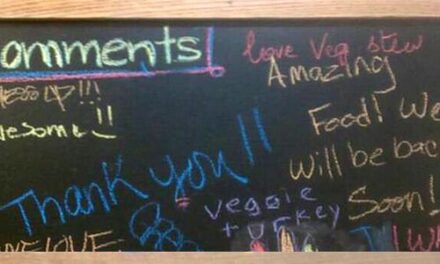 omments!
love Veg stew
Amazing
Food! We
will be bac
Soon!
esome!!
Thank you!!
veggie
+ turkey
WE LOVE
I W